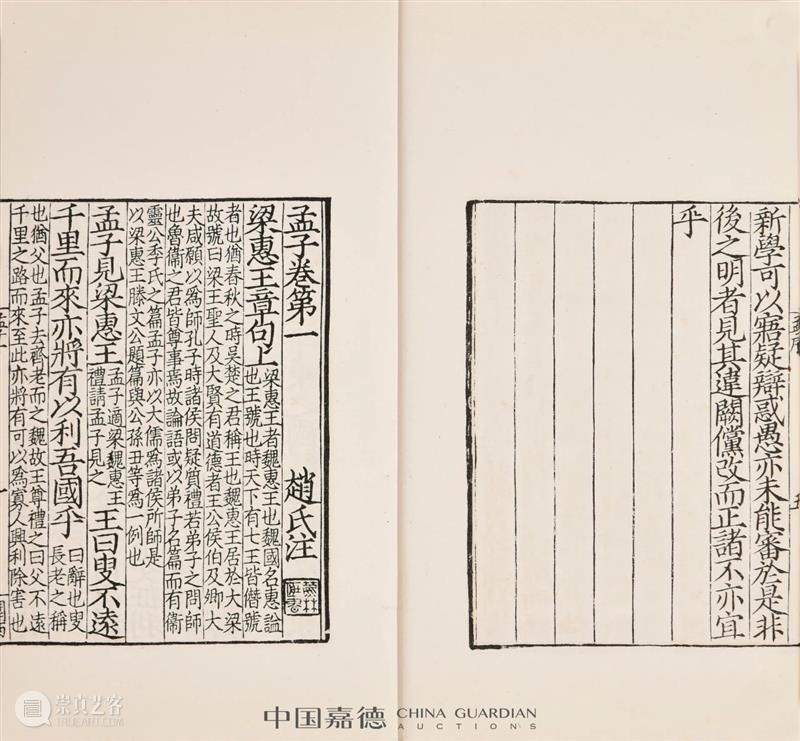 新學可以寤疑辯惑愚亦未能審於是非
後之明者見其違闕儻改而正諸不亦宜
乎
五
孟子卷第一 趙氏注
梁惠王章句上 梁惠王者魏惠王也魏國名惠謚
也王號也時天下有七王皆僭號
者也猶春秋之時吳楚之君稱王也魏惠王居於大梁
故號曰梁王聖人及大賢有道德者王公侯伯及卿大
夫咸願以爲師孔子時諸侯問疑質禮若弟子之問師
也魯衞之君皆尊事焉故論語或以弟子名篇而有衞
靈公季氏之篇孟子亦以大儒爲諸侯所師是
以梁惠王滕文公題篇與公孫丑等爲一例也
孟子見梁惠王 孟子適梁魏惠王
禮請孟子見之 王曰叟不遠
千里而來亦將有以利吾國乎 曰辭也叟
長老之稱
也猶父也孟子去齊老而之魏故王尊禮之曰父不遠
千里之路而來至此亦將有可以爲寡人興利除害也
崇真艺客
TRUEART.COM
中国嘉德 CHINA GUARDIAN
AUCTIONS